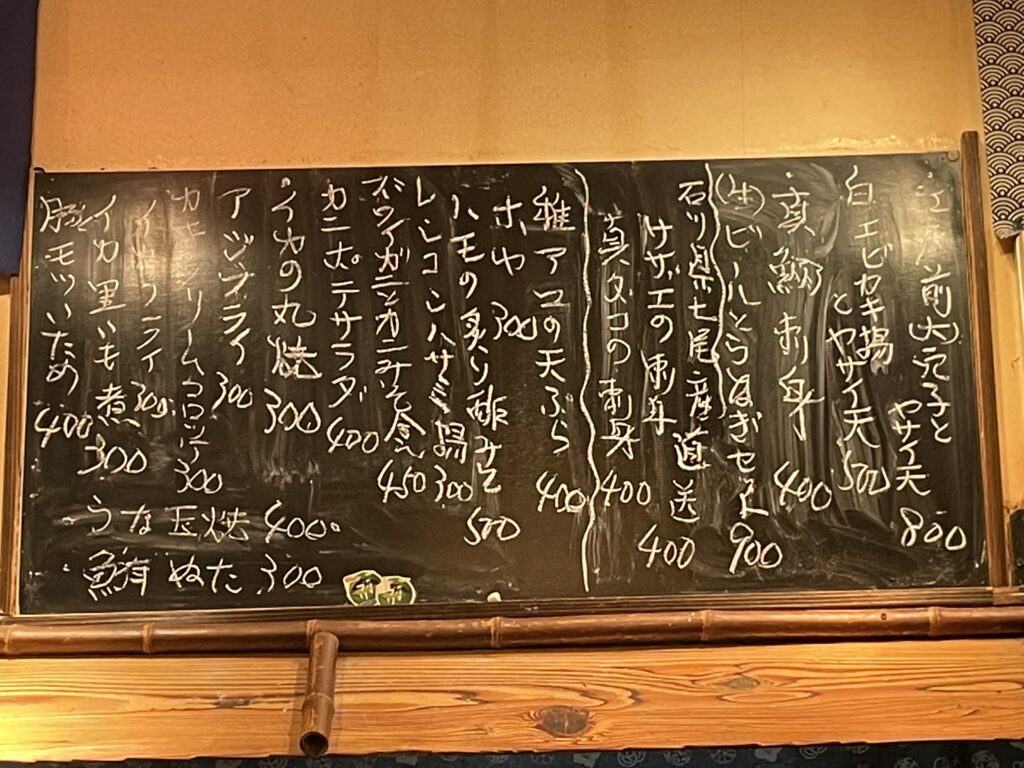 江戸前(大)穴子と
ヤサイ天 800
白エビカキ揚
とヤサイ天 500
真鯛刺身 400
(生)ビールとうなぎセット 900
石川県七尾産直送
サザエの刺身 400
真ダコの刺身 400
稚アユの天ぷら 400
ホヤ 300
ハモの炙り酢みそ 500
レンコンハサミ揚 300
ズワイガニとカニみそ食 450
カニポテサラダ 400
イカの丸焼 300
アジフライ 300
カキクリームコロッケ 300
イカフライ 300
イカ里いも煮 300
豚モツいため 400
うな玉焼 400
鮪ぬた 300